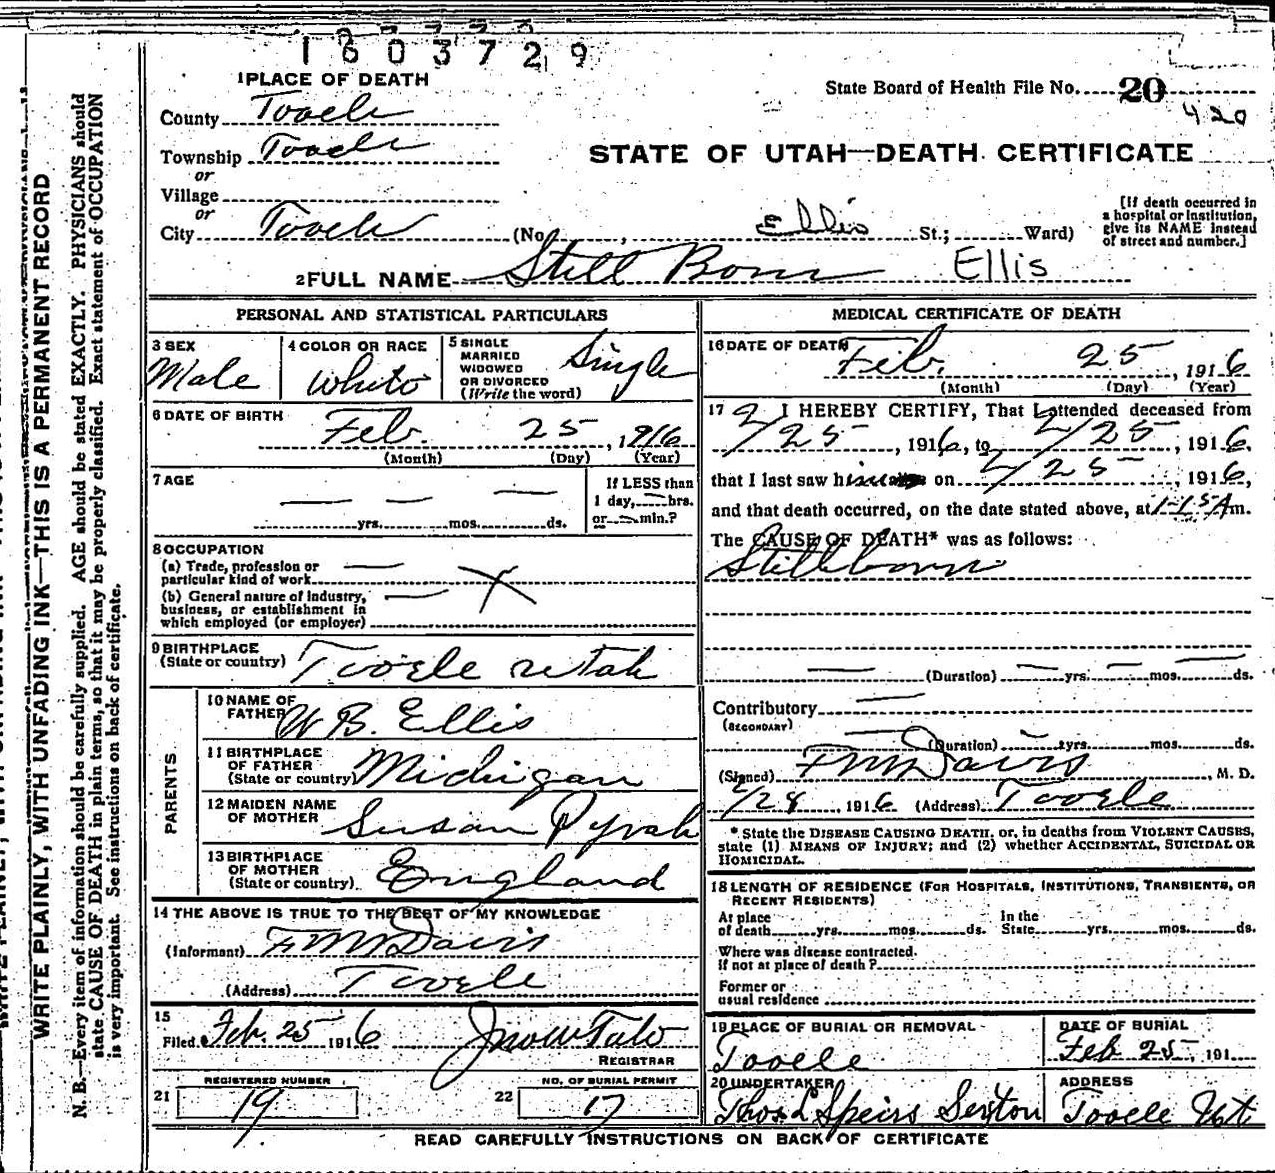 1603729
1 PLACE OF DEATH
State Board of Health File No. 20
420
County Tooele
Township Tooele
or
Village
or
City Tooele (No. , Ellis St.; Ward)
STATE OF UTAH—DEATH CERTIFICATE
[If death occurred in
a hospital or institution,
give its NAME instead
of street and number.]
2 FULL NAME Still Born Ellis
PERSONAL AND STATISTICAL PARTICULARS
3 SEX
Male
4 COLOR OR RACE
White
5 SINGLE
MARRIED
WIDOWED
OR DIVORCED
(Write the word)
Single
6 DATE OF BIRTH
Feb. 25, 1916
(Month) (Day) (Year)
7 AGE
yrs. mos. ds.
If LESS than
1 day, hrs.
or min.?
8 OCCUPATION
(a) Trade, profession or
particular kind of work
(b) General nature of industry,
business, or establishment in
which employed (or employer)
9 BIRTHPLACE
(State or country) Tooele Utah
PARENTS
10 NAME OF
FATHER W B. Ellis
11 BIRTHPLACE
OF FATHER
(State or country) Michigan
12 MAIDEN NAME
OF MOTHER Susan
13 BIRTHPLACE
OF MOTHER
(State or country) England
14 THE ABOVE IS TRUE TO THE BEST OF MY KNOWLEDGE
(Informant) F M Davis
(Address) Tooele
15
Filed Feb. 25 1916
REGISTRAR
21 REGISTERED NUMBER
19
22 NO. OF BURIAL PERMIT
17
MEDICAL CERTIFICATE OF DEATH
16 DATE OF DEATH
Feb. 25, 1916
(Month) (Day) (Year)
17 I HEREBY CERTIFY, That I attended deceased from
2/25, 1916, to 2/25, 1916,
that I last saw him on 2/25, 1916,
and that death occurred, on the date stated above, at 1-15 Am.
The CAUSE OF DEATH* was as follows:
Stillborn
(Duration) yrs. mos. ds.
Contributory
(SECONDARY)
(Duration) yrs. mos. ds.
(Signed) F M Davis, M. D.
2/28, 1916 (Address) Tooele
* State the DISEASE CAUSING DEATH, or, in deaths from VIOLENT CAUSES,
state (1) MEANS OF INJURY; and (2) whether ACCIDENTAL, SUICIDAL OR
HOMICIDAL.
18 LENGTH OF RESIDENCE (FOR HOSPITALS, INSTITUTIONS, TRANSIENTS, OR
RECENT RESIDENTS)
At place
of death yrs. mos. ds.
In the
State yrs. mos. ds.
Where was disease contracted.
If not at place of death?
Former or
usual residence
19 PLACE OF BURIAL OR REMOVAL
Tooele
DATE OF BURIAL
Feb 25, 191
20 UNDERTAKER
Thos L Speirs Sexton
ADDRESS
Tooele Ut
READ CAREFULLY INSTRUCTIONS ON BACK OF CERTIFICATE
WRITE PLAINLY, WITH UNFADING INK—THIS IS A PERMANENT RECORD
N. B.—Every item of information should be carefully supplied. AGE should be stated EXACTLY. PHYSICIANS should
state CAUSE OF DEATH in plain terms, so that it may be properly classified. Exact statement of OCCUPATION
is very important. See instructions on back of certificate.